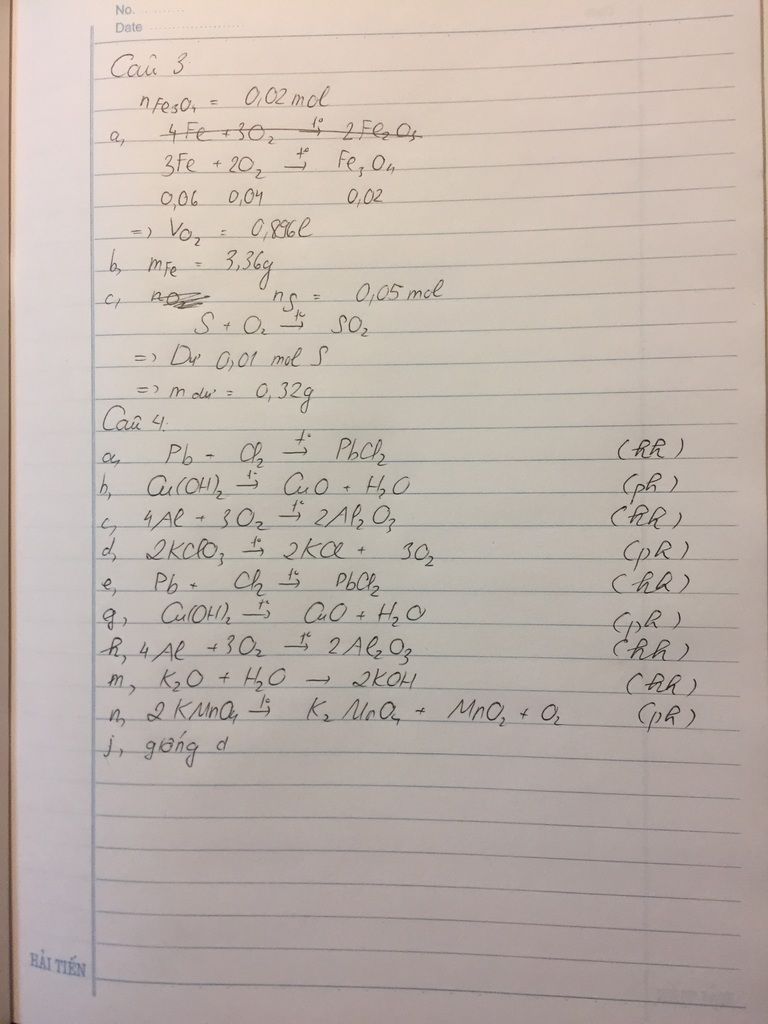 No. ............
Date .....................
Câu 3
nFe₃O₄ = 0,02 mol
a, 4Fe + 3O₂ →t° 2Fe₂O₃
3Fe + 2O₂ →t° Fe₃O₄
0,06 0,04 0,02
=> VO₂ = 0,896l
b, mFe = 3,36g
c, nO₂ nS = 0,05 mol
S + O₂ →t° SO₂
=> Dư 0,01 mol S
=> m dư = 0,32g
Câu 4:
a, Pb + Cl₂ →t° PbCl₂ (hh)
b, Cu(OH)₂ →t° CuO + H₂O (ph)
c, 4Al + 3O₂ →t° 2Al₂O₃ (hh)
d, 2KClO₃ →t° 2KCl + 3O₂ (ph)
e, Pb + Cl₂ →t° PbCl₂ (hh)
g, Cu(OH)₂ →t° CuO + H₂O (ph)
h, 4Al + 3O₂ →t° 2Al₂O₃ (hh)
m, K₂O + H₂O → 2KOH (hh)
n, 2KMnO₄ →t° K₂MnO₄ + MnO₂ + O₂ (ph)
j, giống d
HẢI TIẾN